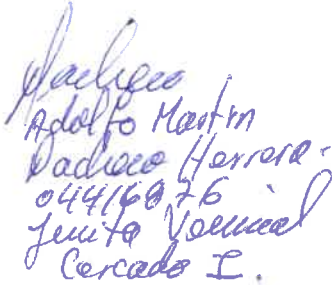 Pacheco
Adolfo Martin
Pacheco Herrera.
04416876
Junta Vecinal
Cercado I.